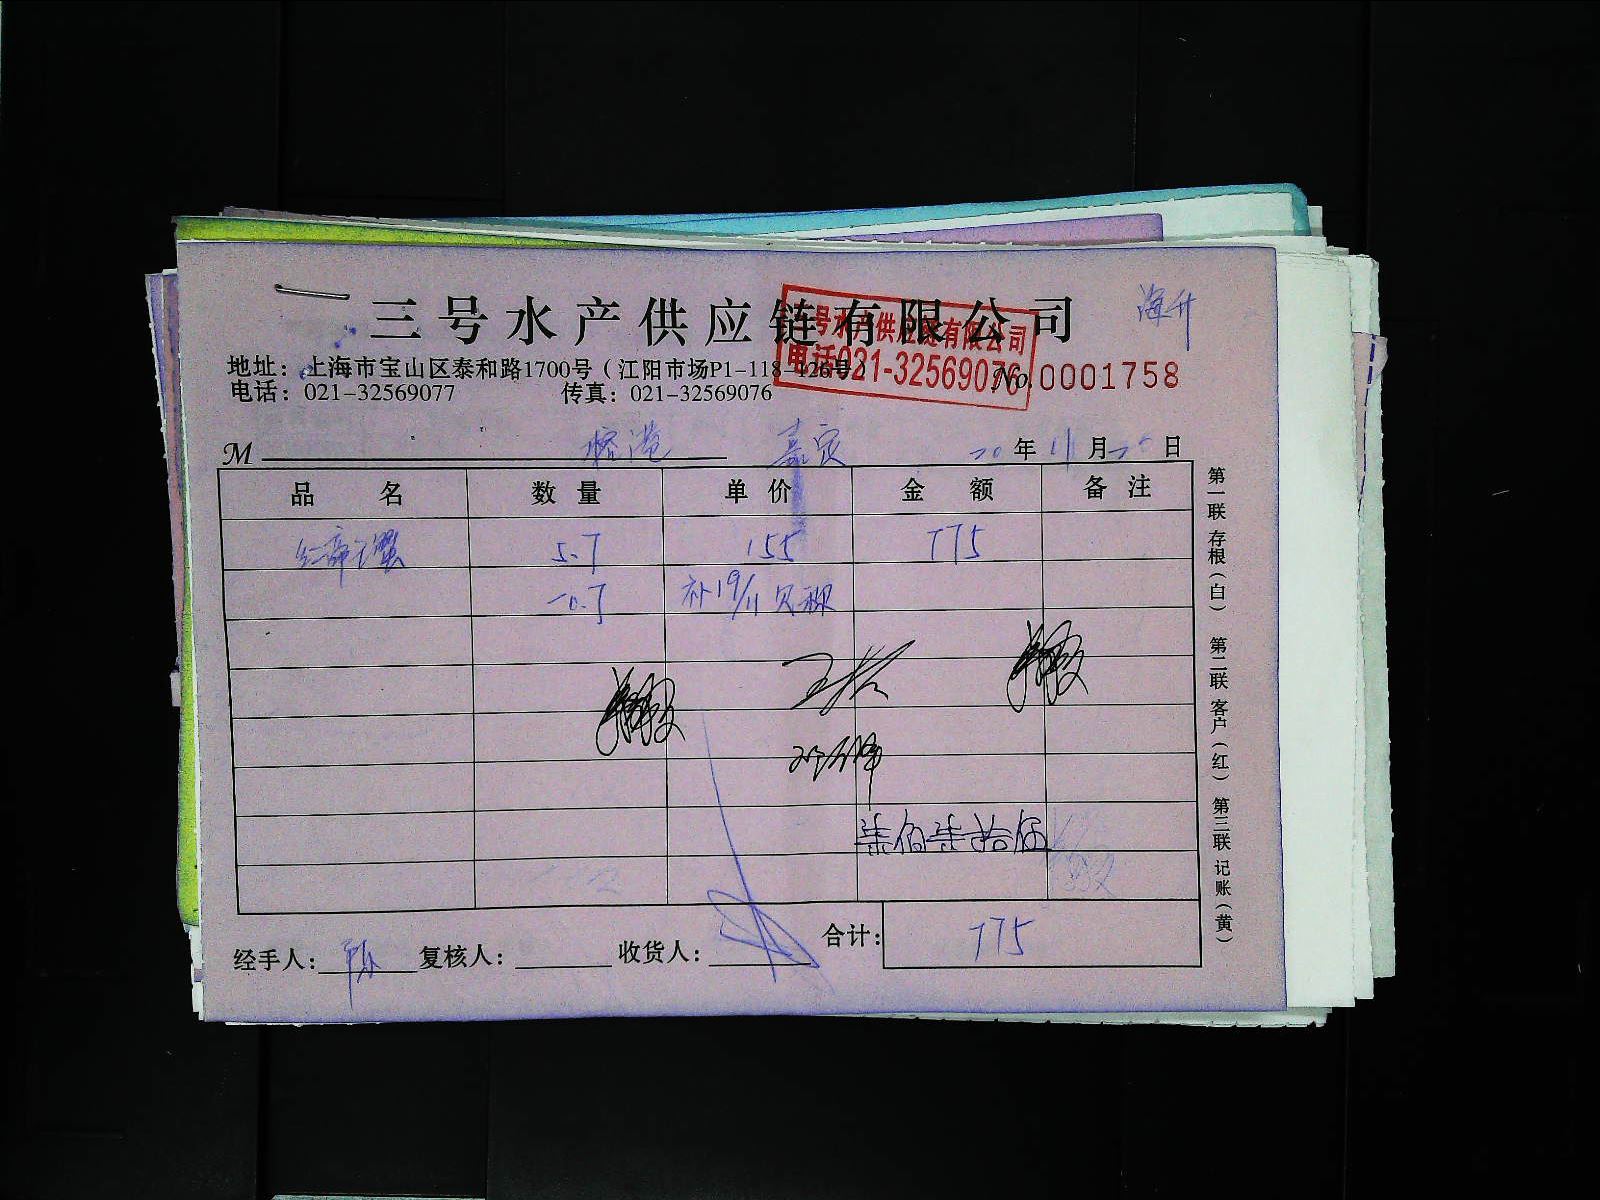 三号水产供应链有限公司
海升
三号水产供应链有限公司
电话021-32569076
地址：上海市宝山区泰和路1700号（江阳市场P1-118-126号）
电话：021-32569077 传真：021-32569076 No. 0001758
M 榕港 嘉定 20年11月20日
品名 数量 单价 金额 备注
红帝王蟹 5.7 155 775
-0.7 补19/11欠称
柒佰柒拾伍
经手人： 复核人： 收货人： 合计：775
第一联 存根（白） 第二联 客户（红） 第三联 记账（黄）